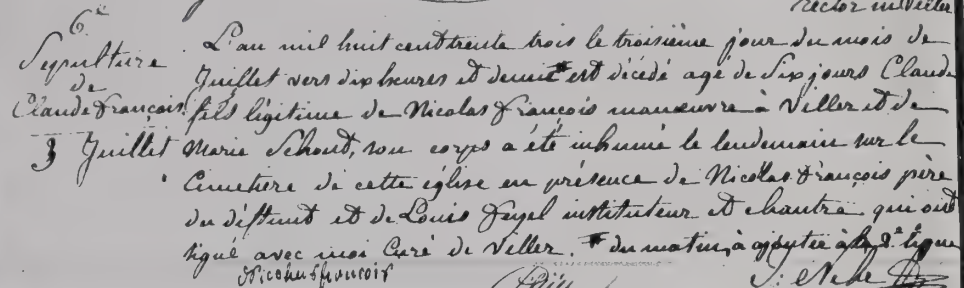 rector in Viller
6e
Sepulture
de
Claude François
3 Juillet
L'an mil huit cent trente trois le troisième jour du mois de
Juillet vers dix heures et demie # est décédé agé de Six jours Claude
fils légitime de Nicolas François manœuvre à Viller et de
Marie Schoud, son corps a été inhumé le lendemain sur le
Cimetiere de cette église en présence de Nicolas François père
du défunt et de Louis instituteur et chantre qui ont
signé avec moi Curé de Viller. # du matin, à ajoutée à la 2e ligne
Nicolas francois